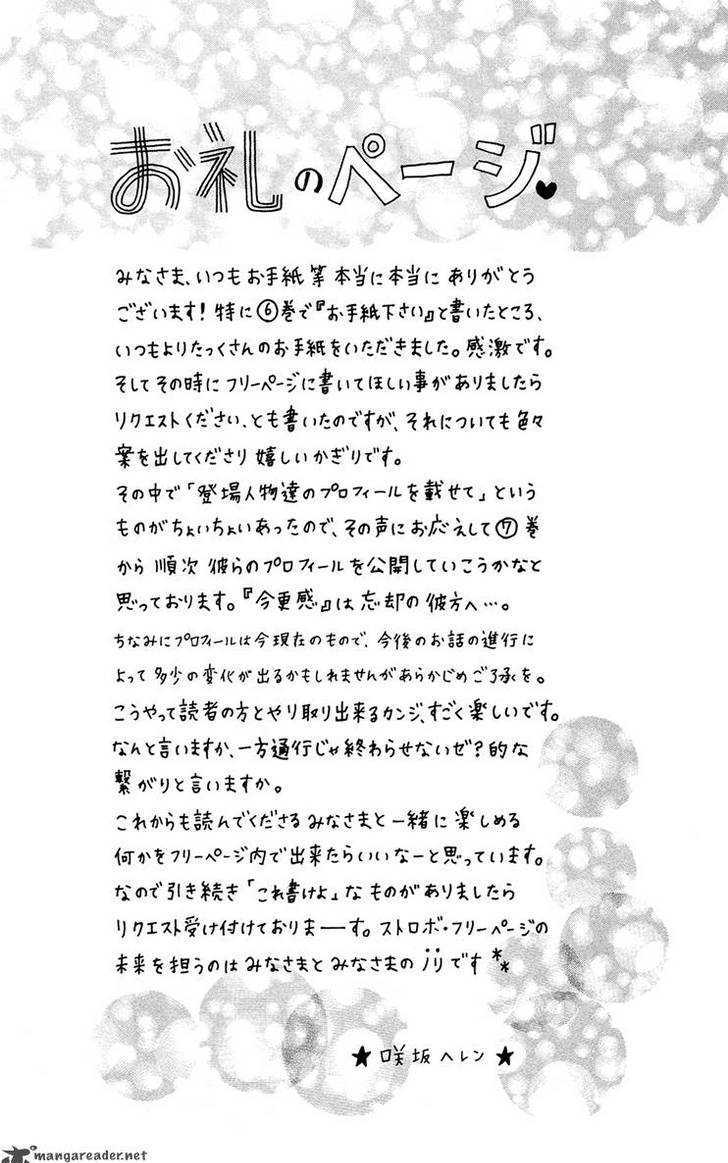 お礼のページ♥
みなさま、いつもお手紙 等 本当に本当に ありがとう
ございます! 特に⑥巻で『お手紙下さい』と書いたところ、
いつもよりたっくさんのお手紙をいただきました。感激です。
そしてその時にフリーページに書いてほしい事がありましたら
リクエストください、とも書いたのですが、それについても色々
案を出してくださり 嬉しいかぎりです。
その中で「登場人物達のプロフィールを載せて」という
ものがちょいちょいあったので、その声にお応えして⑦巻
から 順次 彼らのプロフィールを公開していこうかなと
思っております。『今更感』は 忘却の彼方へ…。
ちなみにプロフィールは今現在のもので、今後のお話の進行に
よって 多少の変化が出るかもしれませんがあらかじめご了承を。
こうやって読者の方とやり取り出来るカンジ、すごく楽しいです。
なんと言いますか、一方通行じゃ終わらせないゼ?的な
繋がりと言いますか。
これからも読んでくださるみなさまと一緒に楽しめる
何かをフリーページ内で出来たらいいなーと思っています。
なので引き続き「これ書けよ」なものがありましたら
リクエスト受け付けておりまーーす。ストロボ・フリーページの
未来を担うのはみなさまとみなさまのです**
★咲坂ヘレン★
mangareader.net